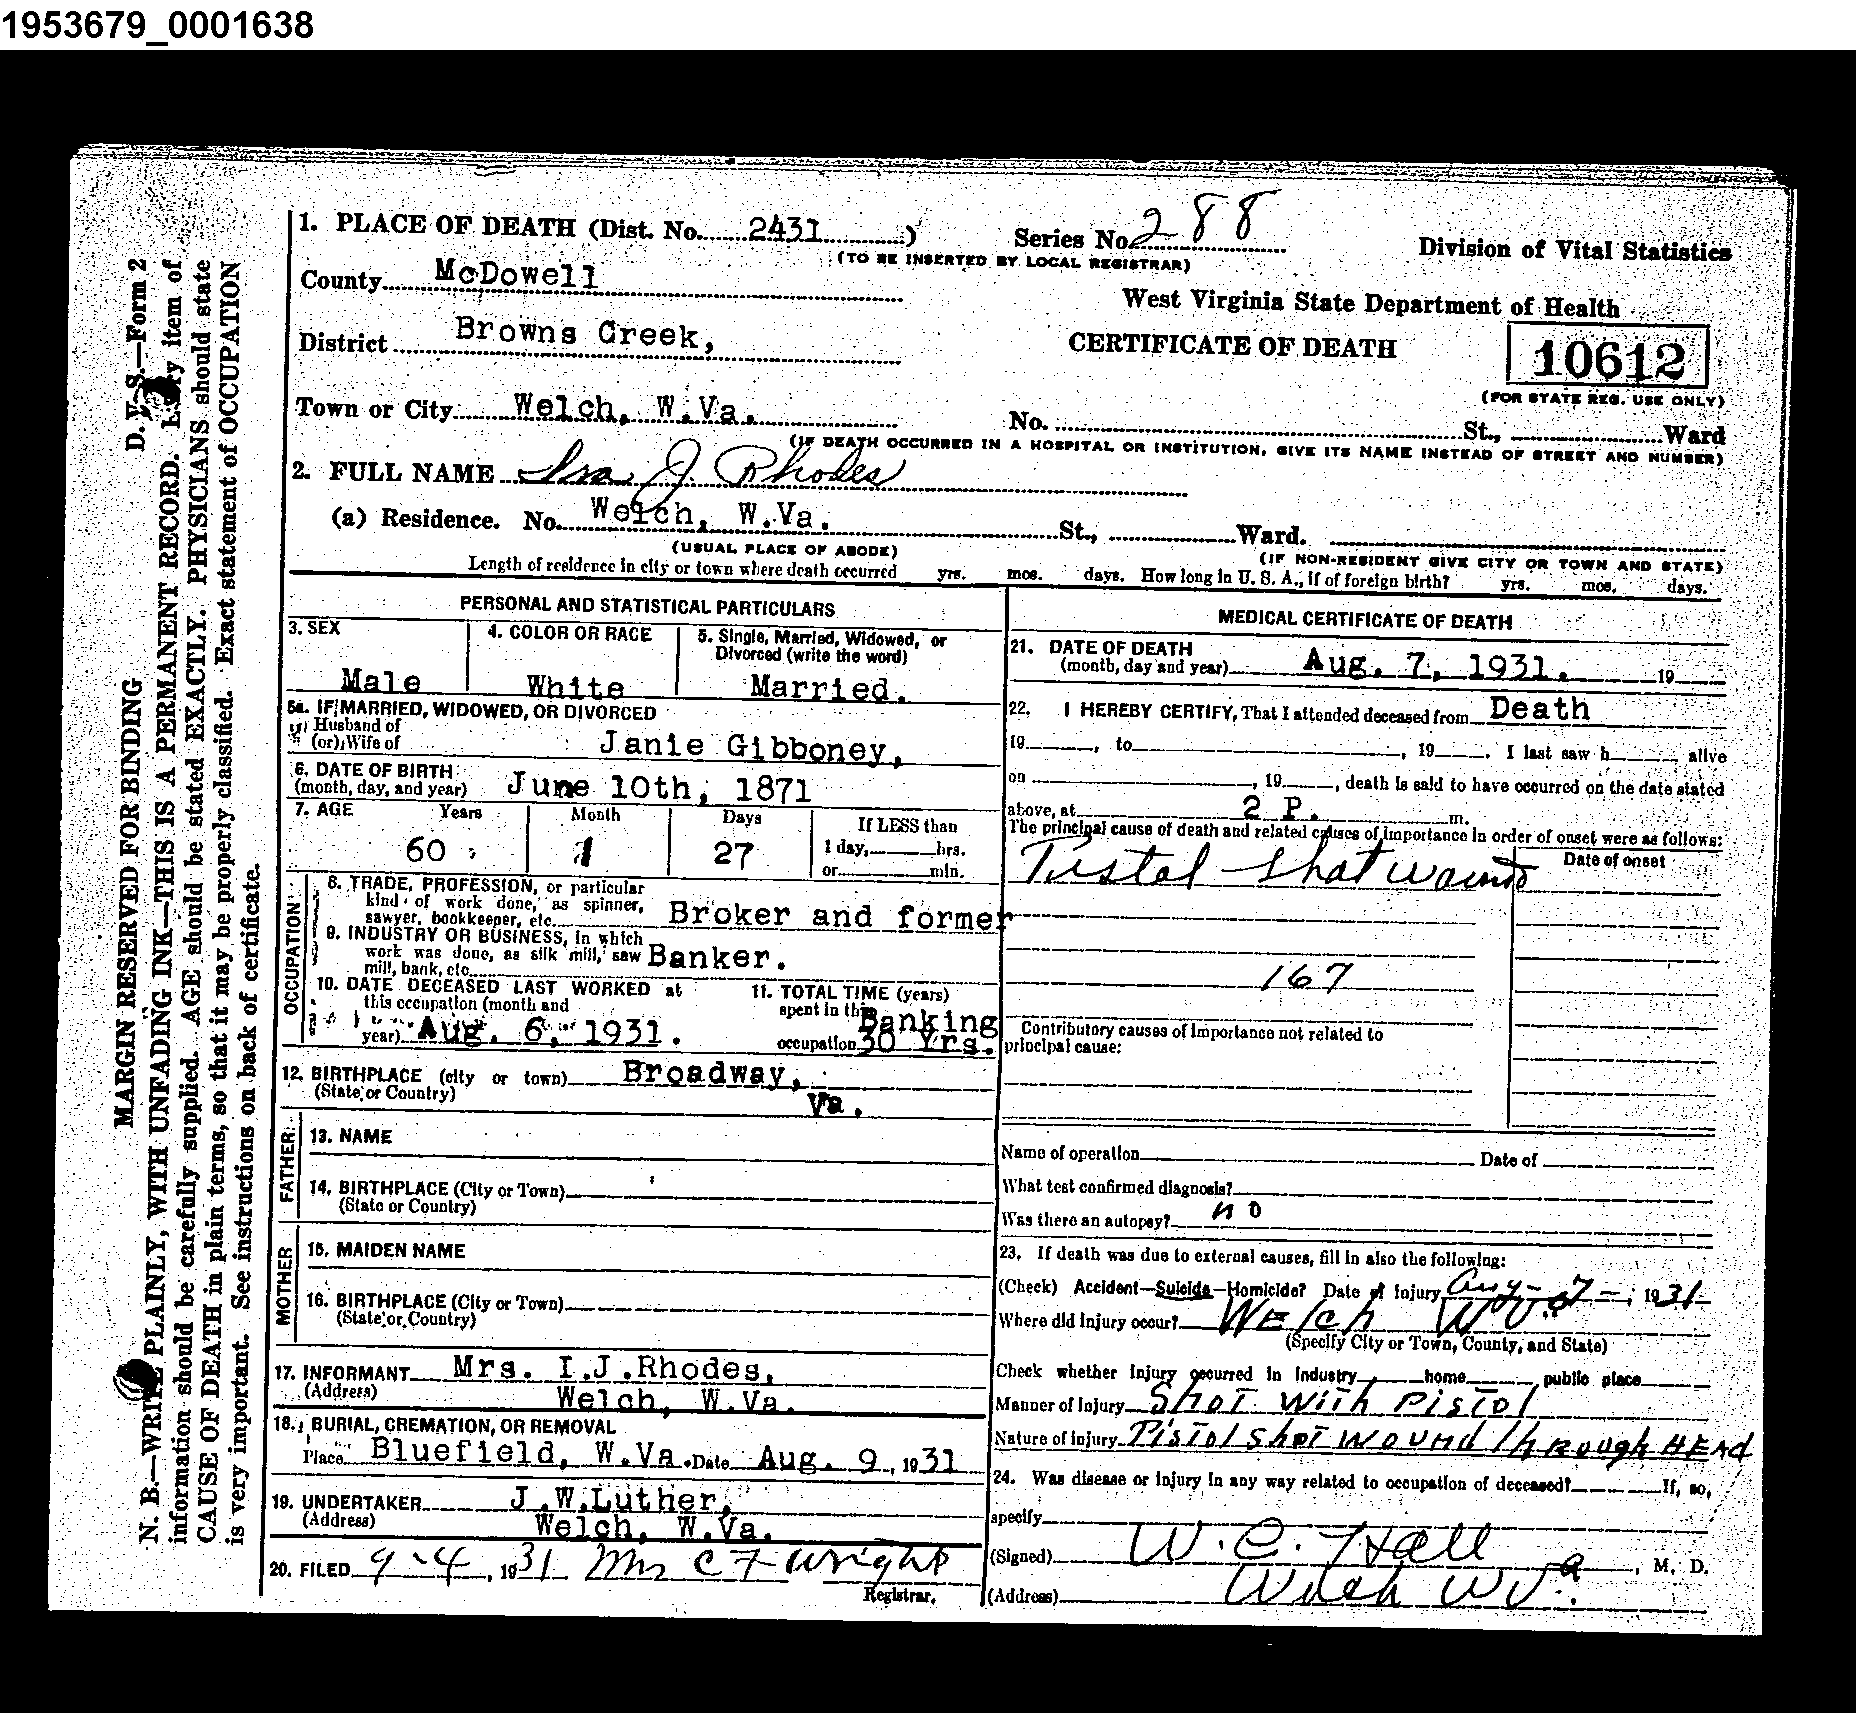 1953679_0001638
1. PLACE OF DEATH (Dist. No. 2431 )
Series No. 288
(TO BE INSERTED BY LOCAL REGISTRAR)
Division of Vital Statistics
County McDowell
West Virginia State Department of Health
District Browns Creek,
CERTIFICATE OF DEATH
10612
(FOR STATE REG. USE ONLY)
Town or City Welch, W.Va.
No. St., Ward
(IF DEATH OCCURRED IN A HOSPITAL OR INSTITUTION, GIVE ITS NAME INSTEAD OF STREET AND NUMBER)
2. FULL NAME Ira J. Rhodes
(a) Residence. No. Welch, W.Va. St., Ward.
(USUAL PLACE OF ABODE)
(IF NON-RESIDENT GIVE CITY OR TOWN AND STATE)
Length of residence in city or town where death occurred yrs. mos. days. How long in U. S. A., if of foreign birth? yrs. mos. days.
PERSONAL AND STATISTICAL PARTICULARS
3. SEX
Male
4. COLOR OR RACE
White
5. Single, Married, Widowed, or
Divorced (write the word)
Married.
5a. IF MARRIED, WIDOWED, OR DIVORCED
Husband of
(or) Wife of Janie Gibboney,
6. DATE OF BIRTH
(month, day, and year) June 10th, 1871
7. AGE Years Month Days
60 1 27
If LESS than
1 day, hrs.
or min.
OCCUPATION
8. TRADE, PROFESSION, or particular
kind of work done, as spinner,
sawyer, bookkeeper, etc. Broker and former
9. INDUSTRY OR BUSINESS, in which
work was done, as silk mill, saw
mill, bank, etc. Banker.
10. DATE DECEASED LAST WORKED at
this occupation (month and
year) Aug. 6, 1931.
11. TOTAL TIME (years)
spent in this Banking
occupation 30 Yrs.
12. BIRTHPLACE (city or town) Broadway,
(State or Country) Va.
FATHER
13. NAME
14. BIRTHPLACE (City or Town)
(State or Country)
MOTHER
15. MAIDEN NAME
16. BIRTHPLACE (City or Town)
(State or Country)
17. INFORMANT Mrs. I.J.Rhodes,
(Address) Welch, W.Va.
18. BURIAL, CREMATION, OR REMOVAL
Place Bluefield, W.Va. Date Aug. 9, 1931
19. UNDERTAKER J.W.Luther,
(Address) Welch, W.Va.
20. FILED 9-4, 1931 Mrs C F Wright
Registrar.
MEDICAL CERTIFICATE OF DEATH
21. DATE OF DEATH
(month, day and year) Aug. 7, 1931. 19
22. I HEREBY CERTIFY, That I attended deceased from Death
19 , to , 19 . I last saw h alive
on , 19 , death is said to have occurred on the date stated
above, at 2 P. m.
The principal cause of death and related causes of importance in order of onset were as follows:
Date of onset
Pistol shot wound
167
Contributory causes of importance not related to
principal cause:
Name of operation Date of
What test confirmed diagnosis?
Was there an autopsy? no
23. If death was due to external causes, fill in also the following:
(Check) Accident—Suicide—Homicide? Date of injury Aug-7-, 1931
Where did injury occur? Welch W Va
(Specify City or Town, County, and State)
Check whether injury occurred in industry home public place
Manner of injury Shot With Pistol
Nature of injury Pistol Shot Wound Through HEAd
24. Was disease or injury in any way related to occupation of deceased? If, so,
specify
(Signed) W. C. Hall , M. D.
(Address) Welch W Va.
D. V. S.—Form 2
MARGIN RESERVED FOR BINDING
N. B.—WRITE PLAINLY, WITH UNFADING INK—THIS IS A PERMANENT RECORD. Every item of
information should be carefully supplied. AGE should be stated EXACTLY. PHYSICIANS should state
CAUSE OF DEATH in plain terms, so that it may be properly classified. Exact statement of OCCUPATION
is very important. See instructions on back of certificate.